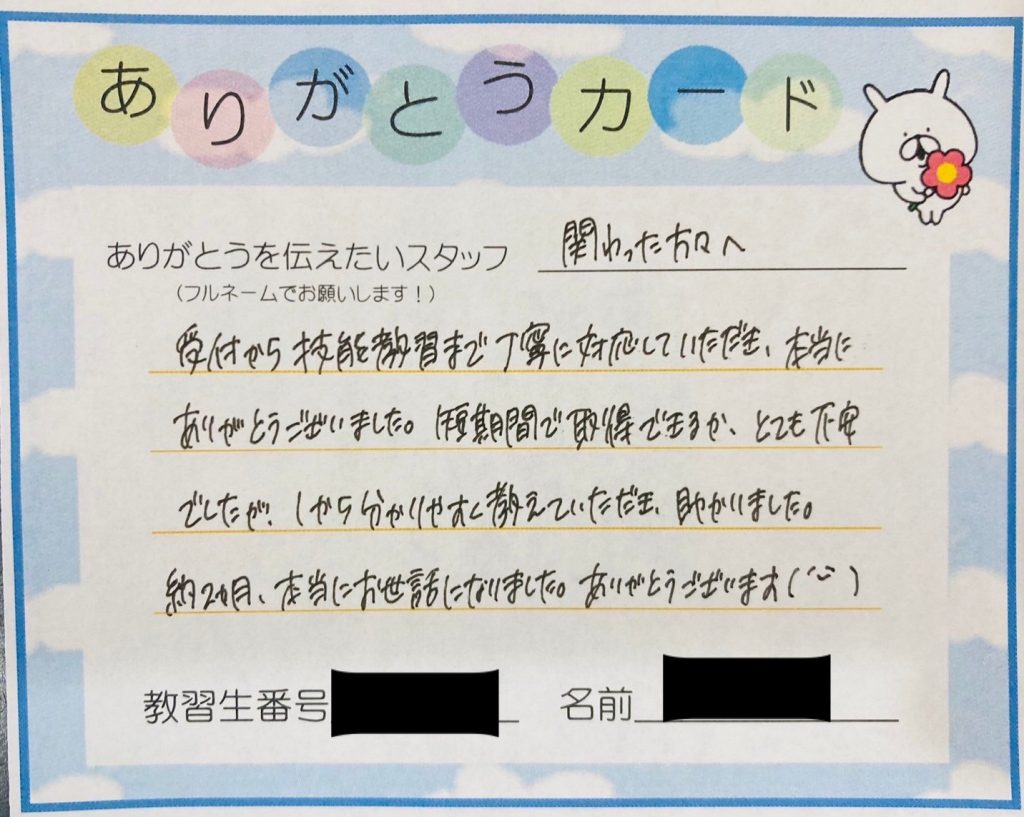 ありがとうカード
ありがとうを伝えたいスタッフ 関わった方々へ
(フルネームでお願いします!)
受付から技能教習まで丁寧に対応していただき、本当に
ありがとうございました。短期間で取得できるか、とても不安
でしたが、1から分かりやすく教えていただき、助かりました。
約2ヵ月、本当にお世話になりました。ありがとうございます(^^)
教習生番号 名前